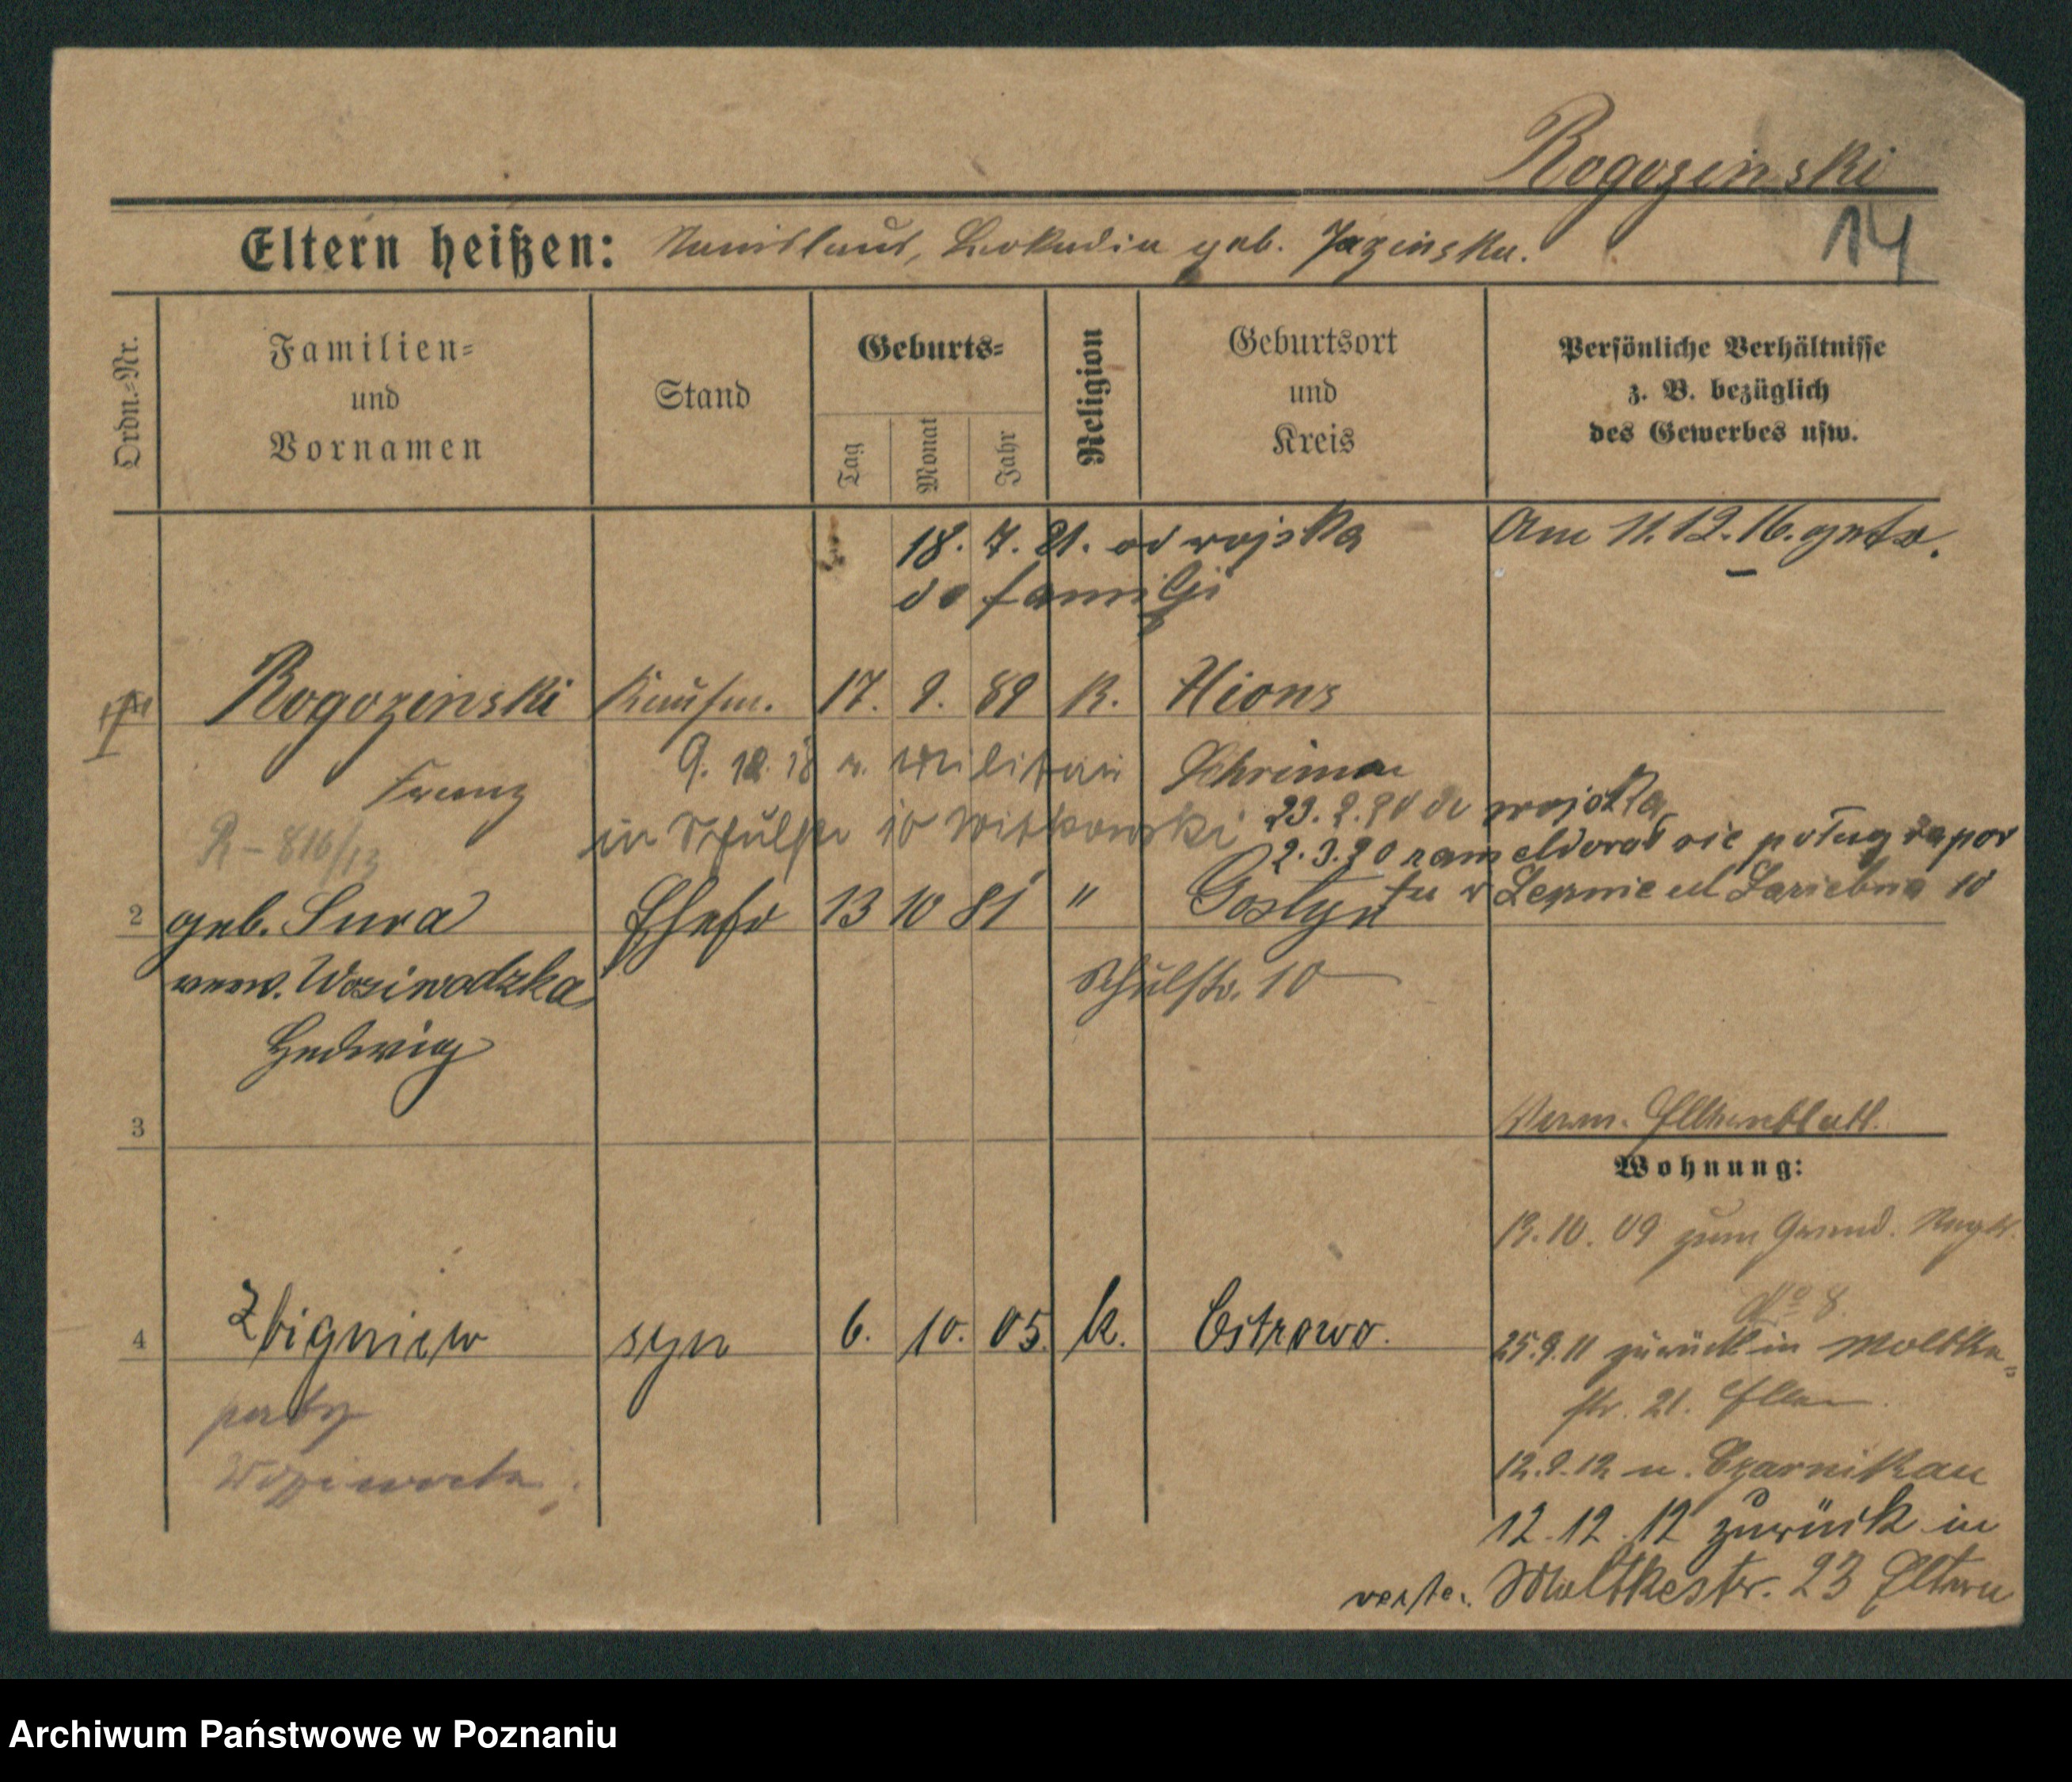 Rogozinski
14
Eltern heißen: Stanislaus, Leokadia geb. Jazinska.
Ordn.=Nr.
Familien=
und
Vornamen
Stand
Geburts=
Tag
Monat
Jahr
Religion
Geburtsort
und
Kreis
Persönliche Verhältnisse
z. B. bezüglich
des Gewerbes usw.
18. 7. 21. od wojska
do familji
Am 11.12.16. getr.
Rogozinski Kaufm. 17. 9. 89 K. Xions
Franz
9. 12. 18 v. Militär Schrimm
in Schulstr 10 Witkowski
R - 816/13
23. 2. 20 do wojska
2. 3. 20 zameldował sie poług rapor
tu w Lesznie ul Łaziebna 10
2 geb. Sura Ehefr 13 10 81 " Gostyn
verw. Woziwodzka
Schulstr. 10
Hedwig
3
Verm. Elternblatt.
Wohnung:
13. 10. 09 zum Grend. Regt.
No 8.
4 Zbigniew syn 6. 10. 05. k. Ostrowo.
25.9.11 zurück in Moltke=
str. 21. Eltern
12.9.12 n. Czarnikau
12.12.12 zurück in
Moltkestr. 23 Eltern
Archiwum Państwowe w Poznaniu